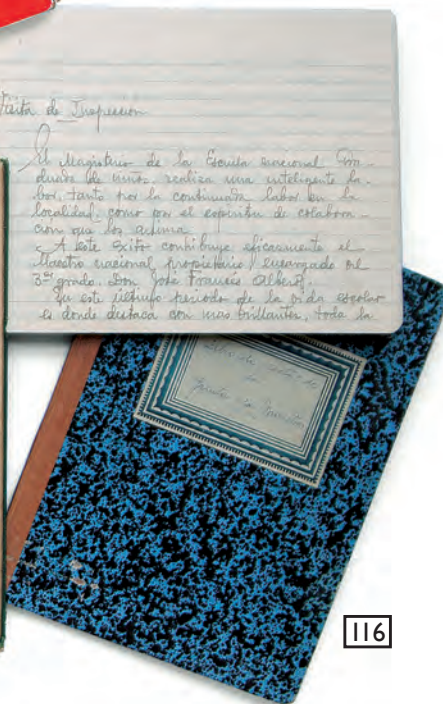 Visita de Inspección
El Magisterio de la Escuela nacional Gra-
duada de niños, realiza una inteligente la-
bor, tanto por la continuada labor en la
localidad, como por el espíritu de colabora-
ción que los anima.
A este éxito contribuye eficazmente el
Maestro nacional propietario, encargado del
3er grado, Don José Francés Alberó.
En este último periodo de la vida escolar
es donde destaca con mas brillantez, toda la
Libro de visitas de
116